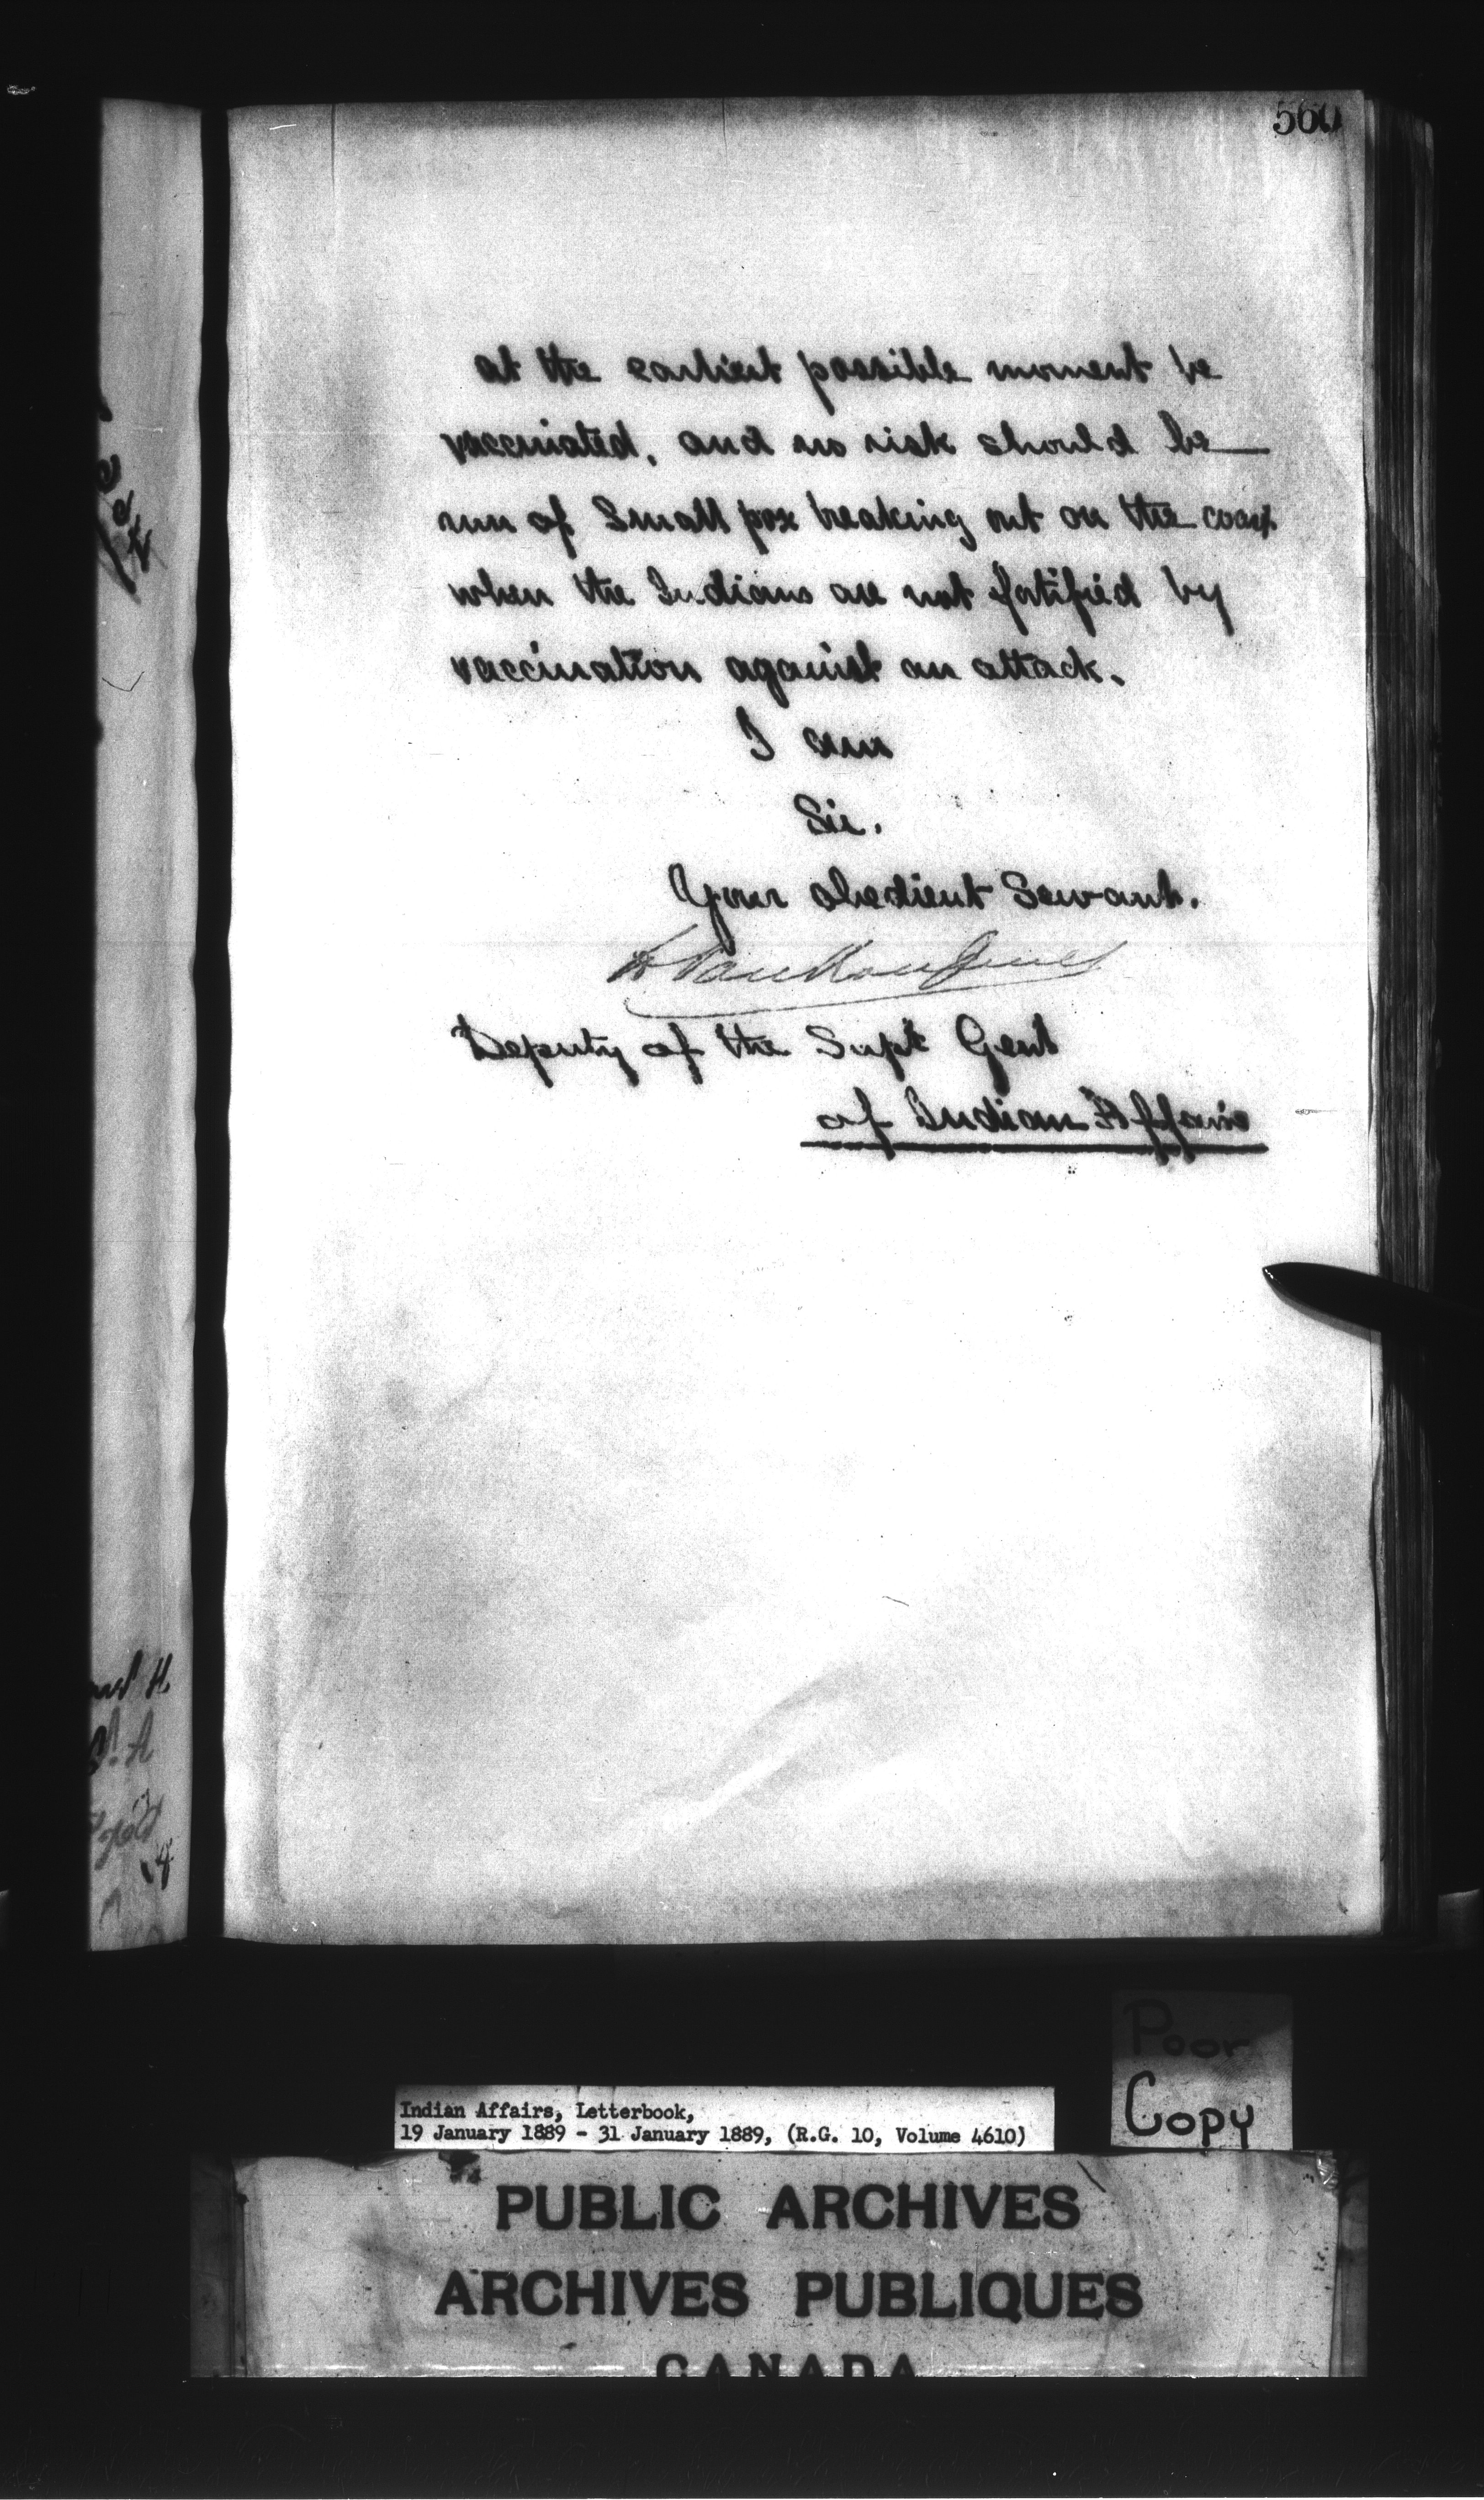 560
at the earliest possible moment be
vaccinated, and no risk should be
run of Small pox breaking out on the coast
when the Indians are not fortified by
vaccination against an attack.
I am
Sir.
Your obedient Servant.
L. Vankoughnet
Deputy of the Supt Genl
of Indian Affairs
Poor
Copy
Indian Affairs, Letterbook,
19 January 1889 - 31 January 1889, (R.G. 10, Volume 4610)
PUBLIC ARCHIVES
ARCHIVES PUBLIQUES
CANADA